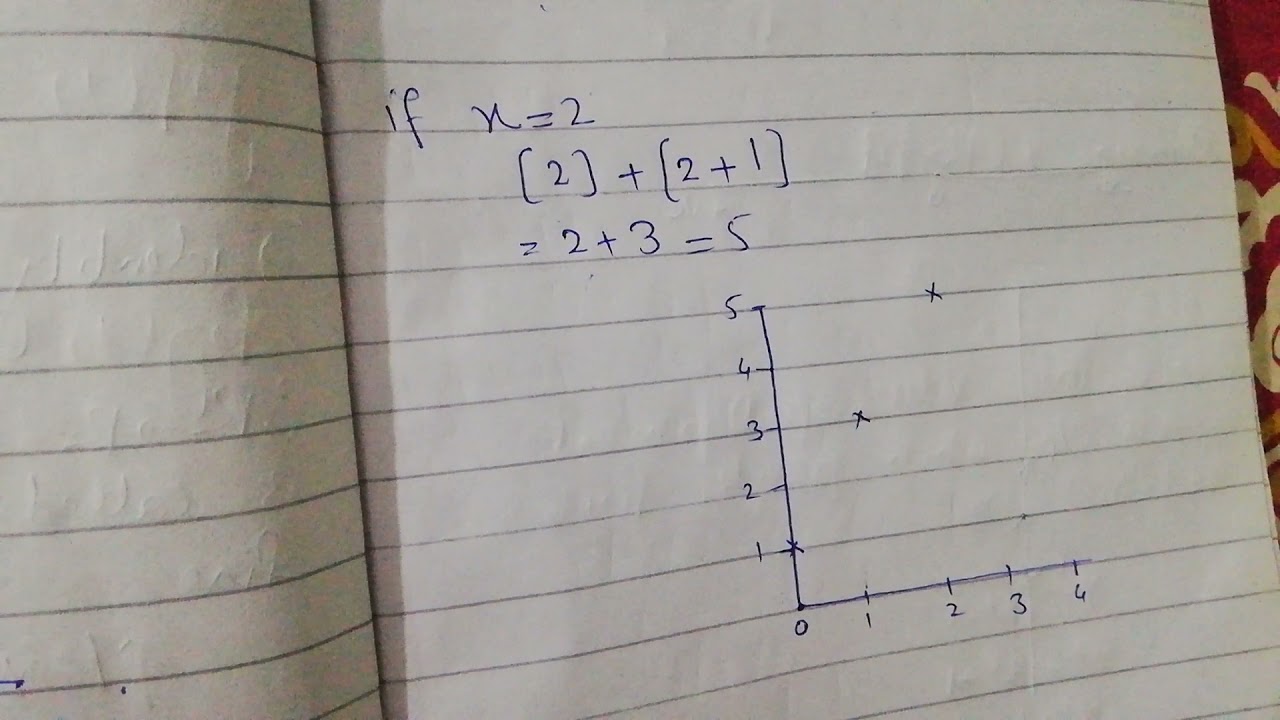 if x=2
[2]+[2+1]
= 2+3 = 5
5
4
3
2
1
0 1 2 3 4